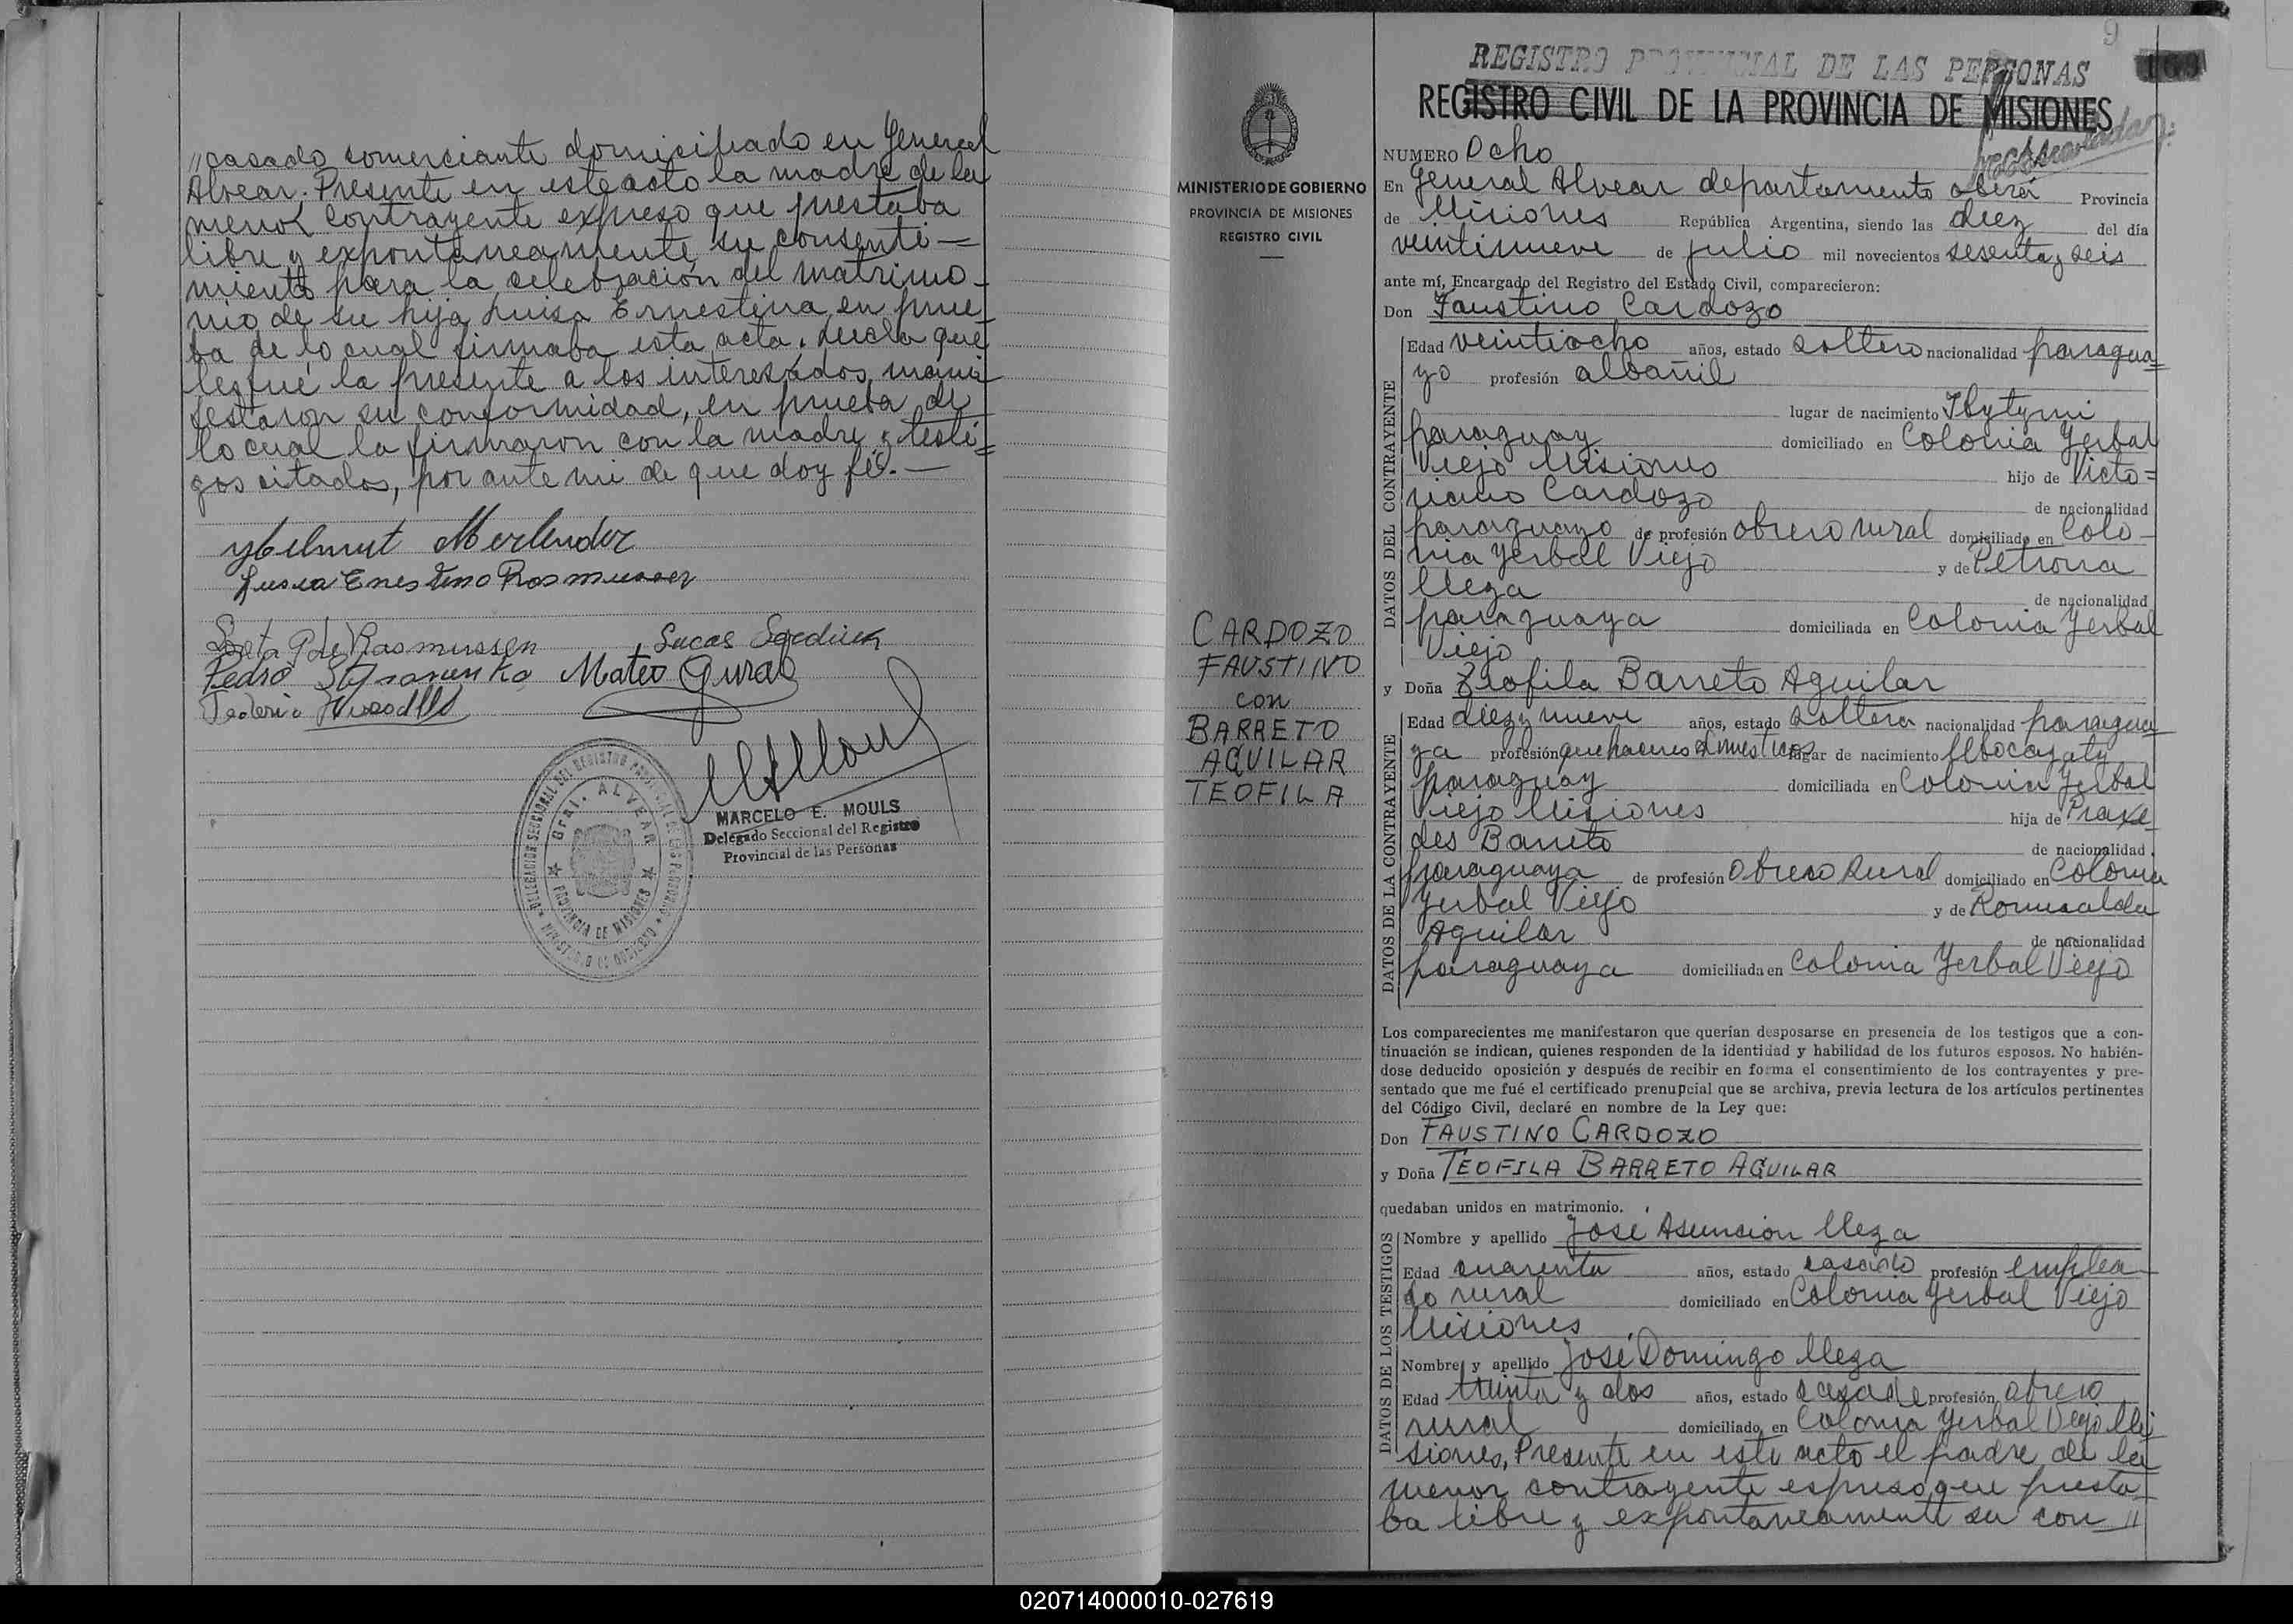 „casado comerciante domiciliado en General
Alvear. Presente en este acto la madre de la
menor contrayente expreso que prestaba
libre y expontaneamente su consenti—
miento para la celebración del matrimo-
nio de su hija Luisa Ernestina en prue
ba de lo cual firmaba esta acta. Leida que
les fué la presente a los interesados, mani
festaron su conformidad, en prueba de
lo cual la firmaron con la madre y testi=
gos citados, por ante mi de que doy fé.—
Helmut
Rasmussen
Rasmussen
Lucas
Pedro
Mateo Gural
Federico
MARCELO E. MOULS
Delegado Seccional del Registro
Provincial de las Personas
DELEGACION SECCIONAL DEL REGISTRO PROVINCIAL DE LAS PERSONAS
MINISTERIO DE GOBIERNO
Gral. ALVEAR
PROVINCIA DE MISIONES
MINISTERIO DE GOBIERNO
PROVINCIA DE MISIONES
REGISTRO CIVIL
CARDOZO
FAUSTINO
con
BARRETO
AGUILAR
TEOFILA
9
169
REGISTRO PROVINCIAL DE LAS PERSONAS
REGISTRO CIVIL DE LA PROVINCIA DE MISIONES
NUMERO Ocho
En General Alvear departamento oberá Provincia
de Misiones República Argentina, siendo las diez del día
veintinueve de julio mil novecientos sesenta y seis
ante mí, Encargado del Registro del Estado Civil, comparecieron:
Don Faustino Cardozo
DATOS DEL CONTRAYENTE
Edad veintiocho años, estado soltero nacionalidad paragua=
yo profesión albañil
lugar de nacimiento Ybytymi
paraguay domiciliado en Colonia Yerbal
Viejo Misiones hijo de Victo=
riano Cardozo de nacionalidad
paraguayo de profesión obrero rural domiciliado en Colo-
nia Yerbal Viejo y de Petrona
Meza de nacionalidad
paraguaya domiciliada en Colonia Yerbal
Viejo
y Doña Teofila Barreto Aguilar
DATOS DE LA CONTRAYENTE
Edad diez y nueve años, estado soltera nacionalidad paragua
ya profesión quehaceres domesticos lugar de nacimiento Mbocayaty
paraguay domiciliada en Colonia Yerbal
Viejo Misiones hija de Praxe-
des Barreto de nacionalidad
paraguaya de profesión Obrero Rural domiciliado en Colonia
Yerbal Viejo y de Romualda
Aguilar de nacionalidad
paraguaya domiciliada en Colonia Yerbal Viejo
Los comparecientes me manifestaron que querían desposarse en presencia de los testigos que a con-
tinuación se indican, quienes responden de la identidad y habilidad de los futuros esposos. No habién-
dose deducido oposición y después de recibir en forma el consentimiento de los contrayentes y pre-
sentado que me fué el certificado prenupcial que se archiva, previa lectura de los artículos pertinentes
del Código Civil, declaré en nombre de la Ley que:
Don FAUSTINO CARDOZO
y Doña TEOFILA BARRETO AGUILAR
quedaban unidos en matrimonio.
DATOS DE LOS TESTIGOS
Nombre y apellido Jose Asuncion Meza
Edad cuarenta años, estado casado profesión emplea-
do rural domiciliado en Colonia Yerbal Viejo
Misiones
Nombre y apellido José Domingo Meza
Edad treinta y dos años, estado casado profesión obrero
rural domiciliado en Colonia Yerbal Viejo Mi
siones, Presente en este acto el padre de la
menor contrayente espreso que presta-
ba libre y expontaneamente su con „
020714000010-027619